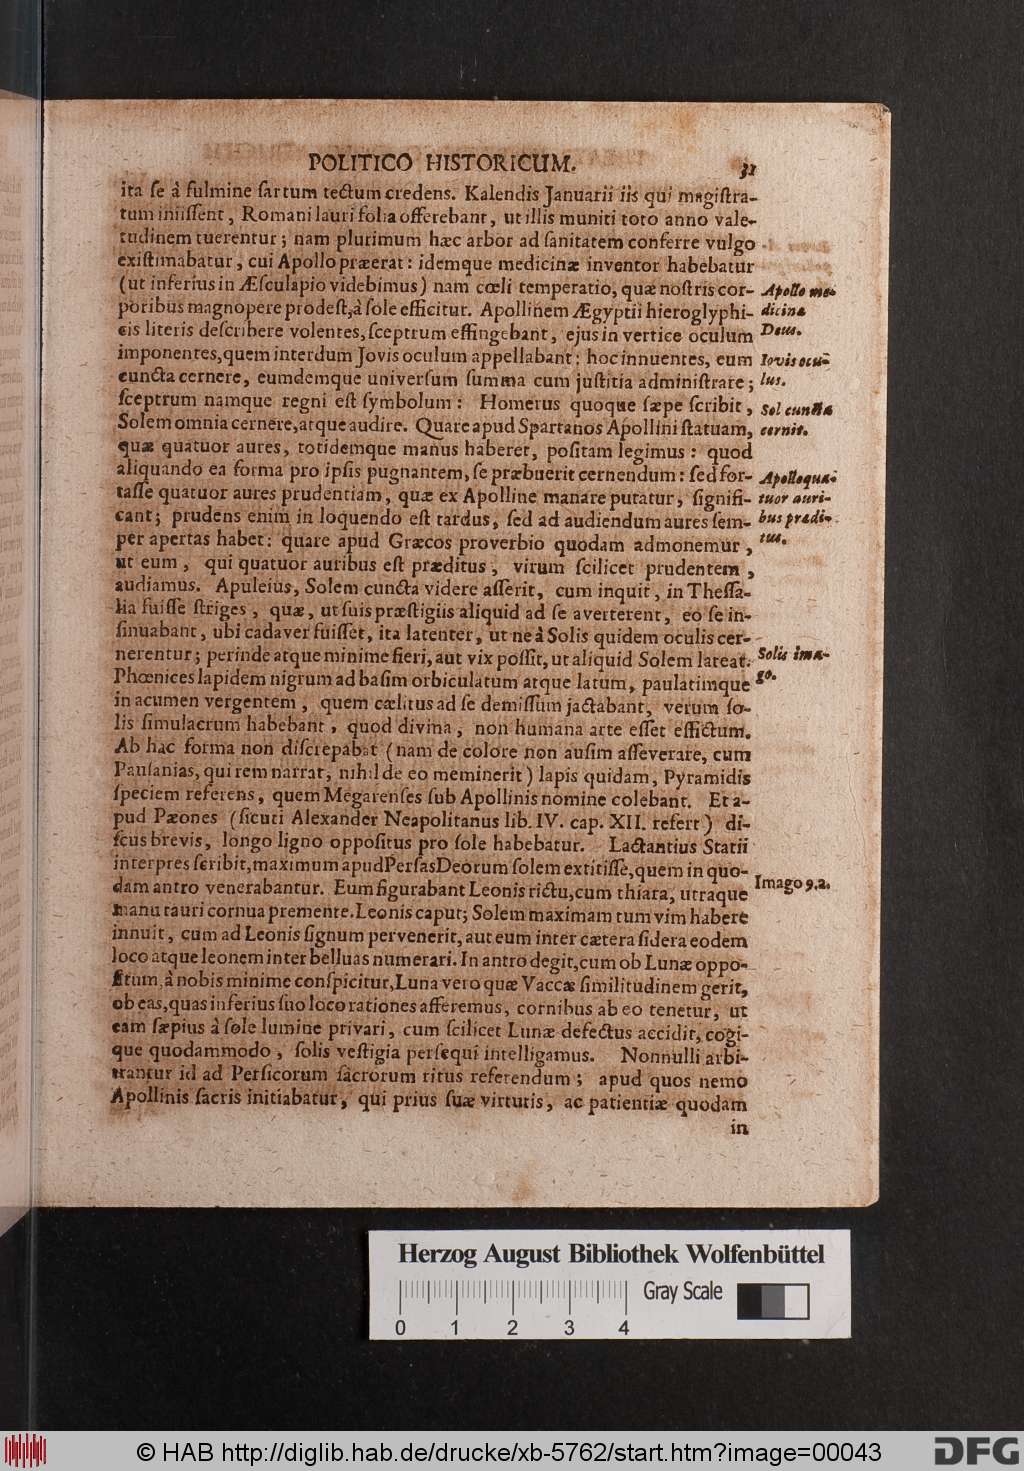 POLITICO HISTORICUM. 31
ita ſe à fulmine ſartum tectum credens. Kalendis Januarii iis qui magiſtra-
tum iniiſſent, Romani lauri folia offerebant, ut illis muniti toto anno vale-
tudinem tuerentur; nam plurimum hæc arbor ad ſanitatem conferre vulgo
exiſtimabatur, cui Apollo præerat: idemque medicinæ inventor habebatur
(ut inferius in Æſculapio videbimus) nam cœli temperatio, quæ noſtris cor-
poribus magnopere prodeſt, à ſole efficitur. Apollinem Ægyptii hieroglyphi-
cis literis deſcribere volentes, ſceptrum effingebant, ejus in vertice oculum
imponentes, quem interdum Jovis oculum appellabant: hoc innuentes, eum
cuncta cernere, eumdemque univerſum ſumma cum juſtitia adminiſtrare;
ſceptrum namque regni eſt ſymbolum: Homerus quoque ſæpe ſcribit,
Solem omnia cernere, atque audire. Quare apud Spartanos Apollini ſtatuam,
quæ quatuor aures, totidemque manus haberet, poſitam legimus: quod
aliquando ea forma pro ipſis pugnantem, ſe præbuerit cernendum: ſed for-
taſſe quatuor aures prudentiam, quæ ex Apolline manare putatur, ſignifi-
cant; prudens enim in loquendo eſt tardus, ſed ad audiendum aures ſem-
per apertas habet: quare apud Græcos proverbio quodam admonemur,
ut eum, qui quatuor auribus eſt præditus, virum ſcilicet prudentem,
audiamus. Apuleius, Solem cuncta videre aſſerit, cum inquit, in Theſſa-
lia fuiſſe ſtriges, quæ, ut ſuis præſtigiis aliquid ad ſe averterent, eo ſe in-
ſinuabant, ubi cadaver fuiſſet, ita latenter, ut ne à Solis quidem oculis cer-
nerentur; perinde atque minime fieri, aut vix poſſit, ut aliquid Solem lateat.
Phœnices lapidem nigrum ad baſim orbiculatum atque latum, paulatimque
in acumen vergentem, quem cælitus ad ſe demiſſum jactabant, verum ſo-
lis ſimulacrum habebant, quod divina, non humana arte eſſet effictum.
Ab hac forma non diſcrepabat (nam de colore non auſim aſſeverare, cum
Pauſanias, qui rem narrat, nihil de eo meminerit) lapis quidam, Pyramidis
ſpeciem referens, quem Megarenſes ſub Apollinis nomine colebant. Et a-
pud Pæones (ſicuti Alexander Neapolitanus lib. IV. cap. XII. refert) di-
ſcus brevis, longo ligno oppoſitus pro ſole habebatur. Lactantius Statii
interpres ſcribit, maximum apud Perſas Deorum ſolem extitiſſe, quem in quo-
dam antro venerabantur. Eum figurabant Leonis rictu, cum thiara, utraque
manu tauri cornua premente. Leonis caput; Solem maximam tum vim habere
innuit, cum ad Leonis ſignum pervenerit, aut eum inter cætera ſidera eodem
loco atque leonem inter belluas numerari. In antro degit, cum ob Lunæ oppo-
ſitum, à nobis minime conſpicitur, Luna vero quæ Vaccæ ſimilitudinem gerit,
ob eas, quas inferius ſuo loco rationes afferemus, cornibus ab eo tenetur, ut
eam ſæpius à ſole lumine privari, cum ſcilicet Lunæ defectus accidit, cogi-
que quodammodo, ſolis veſtigia perſequi intelligamus. Nonnulli arbi-
trantur id ad Perſicorum ſacrorum ritus referendum; apud quos nemo
Apollinis ſacris initiabatur, qui prius ſuæ virtutis, ac patientiæ quodam
in
Apollo me-
dicinæ
Deus.
Iovis ocu-
lus.
Sol cuncta
cernit.
Apollo qua-
tuor auri-
bus prædi-
tus.
Solis ima-
go.
Imago 9.a.
Herzog August Bibliothek Wolfenbüttel
Gray Scale
0 1 2 3 4
© HAB http://diglib.hab.de/drucke/xb-5762/start.htm?image=00043
DFG